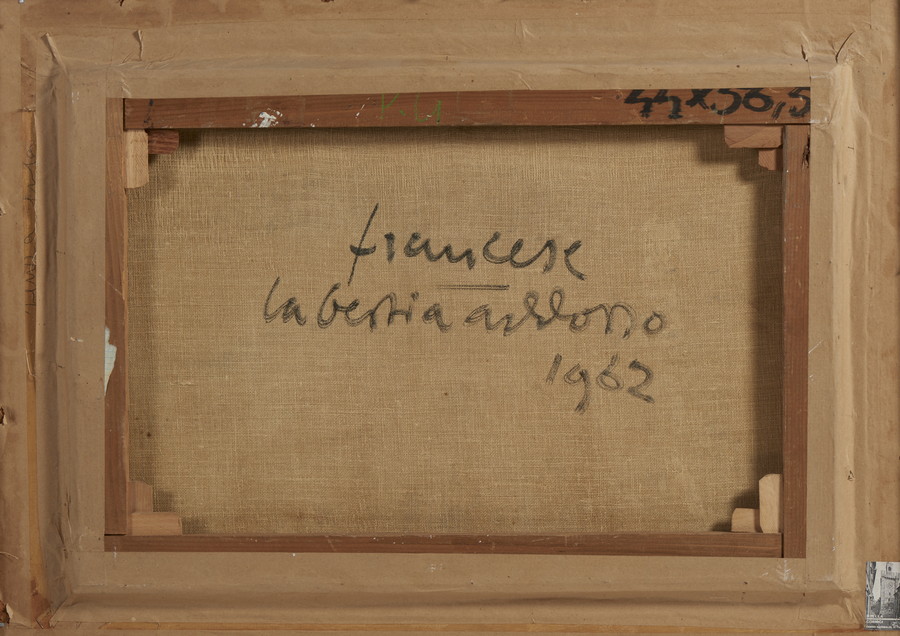 44x56,5
francese
la bestia addosso
1962